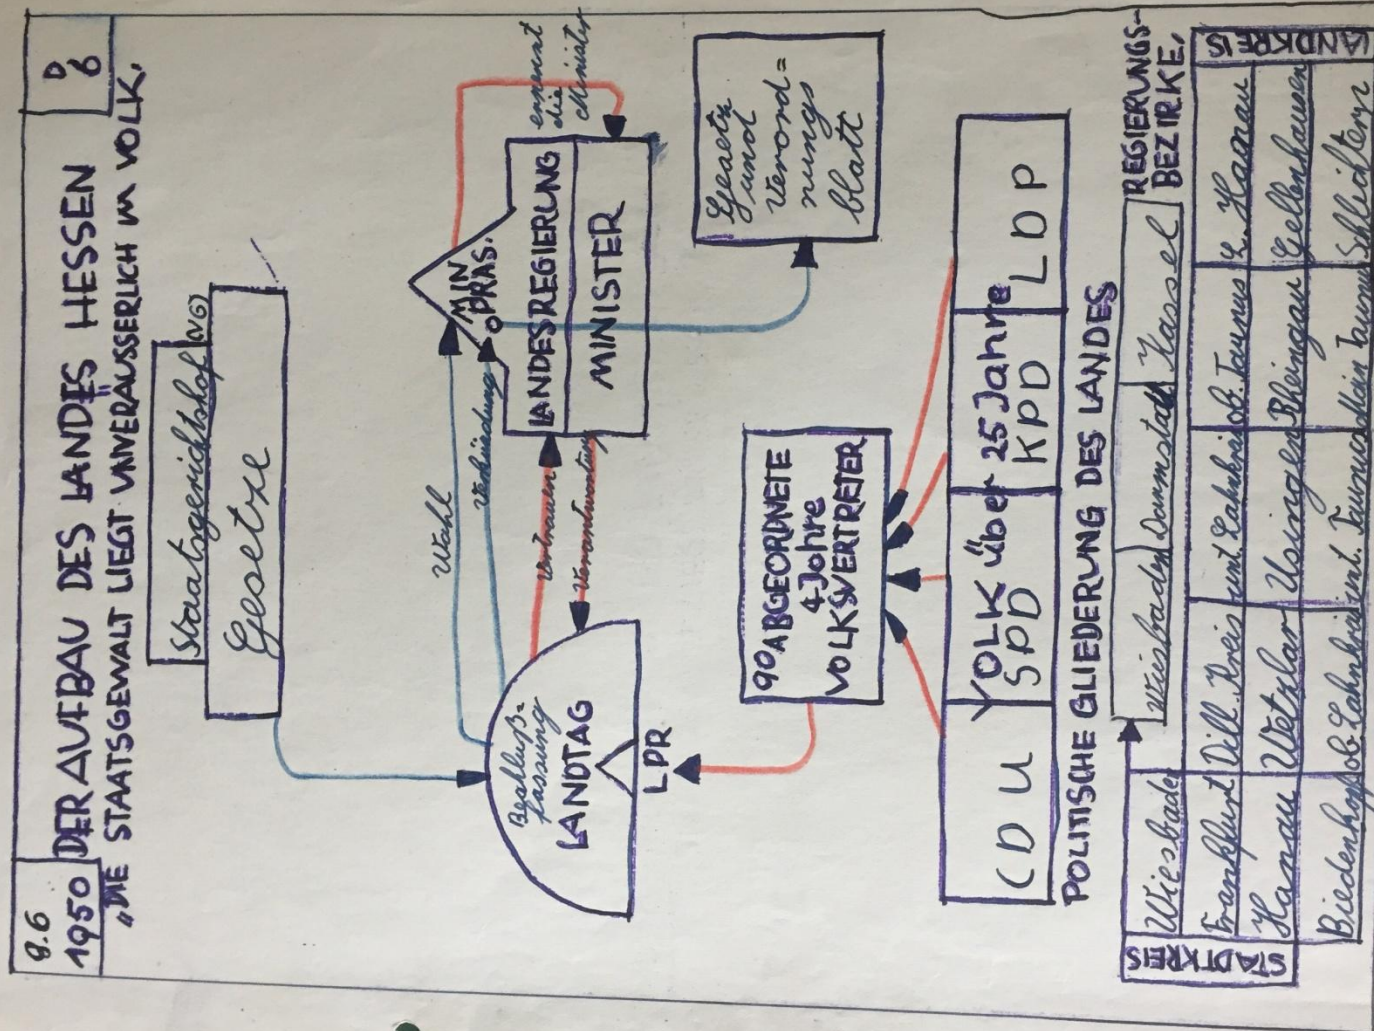 9.6
1950
DER AUFBAU DES LANDES HESSEN
D
6
„DIE STAATSGEWALT LIEGT UNVERÄUSSERLICH IM VOLK.
Staatsgerichtshof
Gesetze
Wahl
Verkündung
Vertrauen
Verantwortung
MIN
PRÄS.
LANDESREGIERUNG
MINISTER
ernennt
die
Minister
Beschluß=
fassung
LANDTAG
LPR
Gesetz
und
Verord=
nungs
blatt
90 ABGEORDNETE
4 Jahre
VOLKSVERTRETER
VOLK über 25 Jahre
CDU SPD KPD LDP
POLITISCHE GLIEDERUNG DES LANDES
REGIERUNGS-
BEZIRKE.
Wiesbaden Darmstadt Kassel
STADTKREIS
LANDKREIS
Wiesbaden
Frankfurt Dill Kreis unt. Lahnkr. ob. Taunus L. Hanau
Hanau Wetzlar Usingen Rheingau Gellenhausen
Biedenkopf ob. Lahnkreis unt. Taunus Main Taunus Schlüchtern